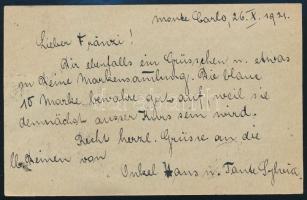 Monte Carlo, 26. X. 1921.
Lieber Fränzi!
Dir ebenfalls ein Grüsschen u. etwas
zu Deine Markensamlung. Die blaue
10 Marke bewahre gut auf weil sie
demnächst ausser Kurs sein wird.
Recht herzl. Grüsse an die
lb. Deinen von
Onkel Hans u. Tante Sylvia